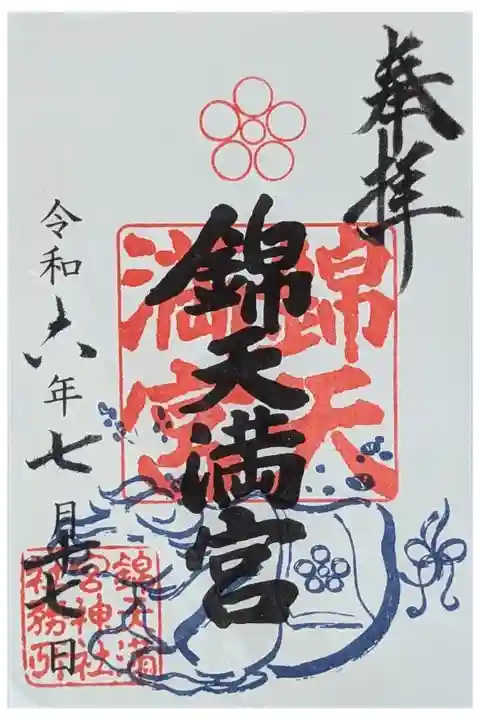 奉拝
錦天満宮
錦天
満宮
令和六年七月十七日
錦天満
宮神社
社務所